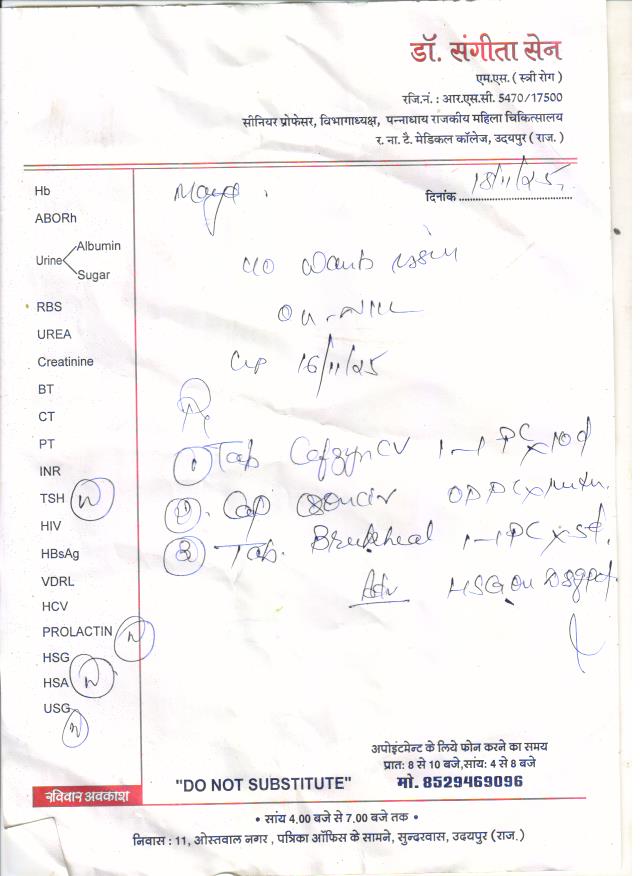 डॉ. संगीता सेन
एम.एस. ( स्त्री रोग )
रजि.नं. : आर.एस.सी. 5470/17500
सीनियर प्रोफेसर, विभागाध्यक्ष, पन्नाधाय राजकीय महिला चिकित्सालय
र. ना. टै. मेडिकल कॉलेज, उदयपुर ( राज. )
दिनांक 18/11/25
Hb
ABORh
Urine Albumin
Sugar
RBS
UREA
Creatinine
BT
CT
PT
INR
TSH N
HIV
HBsAg
VDRL
HCV
PROLACTIN N
HSG
HSA N
USG N
c/o wants issue
LMP 16/11/25
Rx
1. Tab CV 1-1 PC x 10d
2. Cap OD PC x
3. Tab. Breakheal 1-1 PC x 5d.
Adv HSG on
अपोइंटमेन्ट के लिये फोन करने का समय
प्रात: 8 से 10 बजे,सांय: 4 से 8 बजे
"DO NOT SUBSTITUTE" मो. 8529469096
रविवार अवकाश
• सांय 4.00 बजे से 7.00 बजे तक •
निवास : 11, ओस्तवाल नगर , पत्रिका ऑफिस के सामने, सुन्दरवास, उदयपुर (राज.)